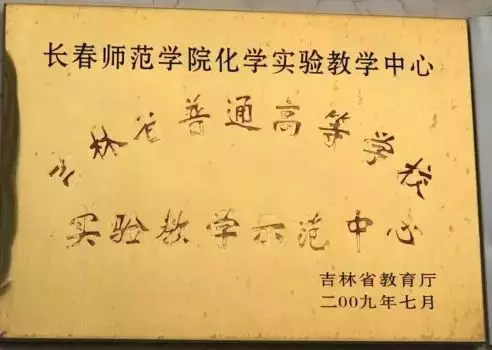 长春师范学院化学实验教学中心
吉林省普通高等学校
实验教学示范中心
吉林省教育厅
二00九年七月